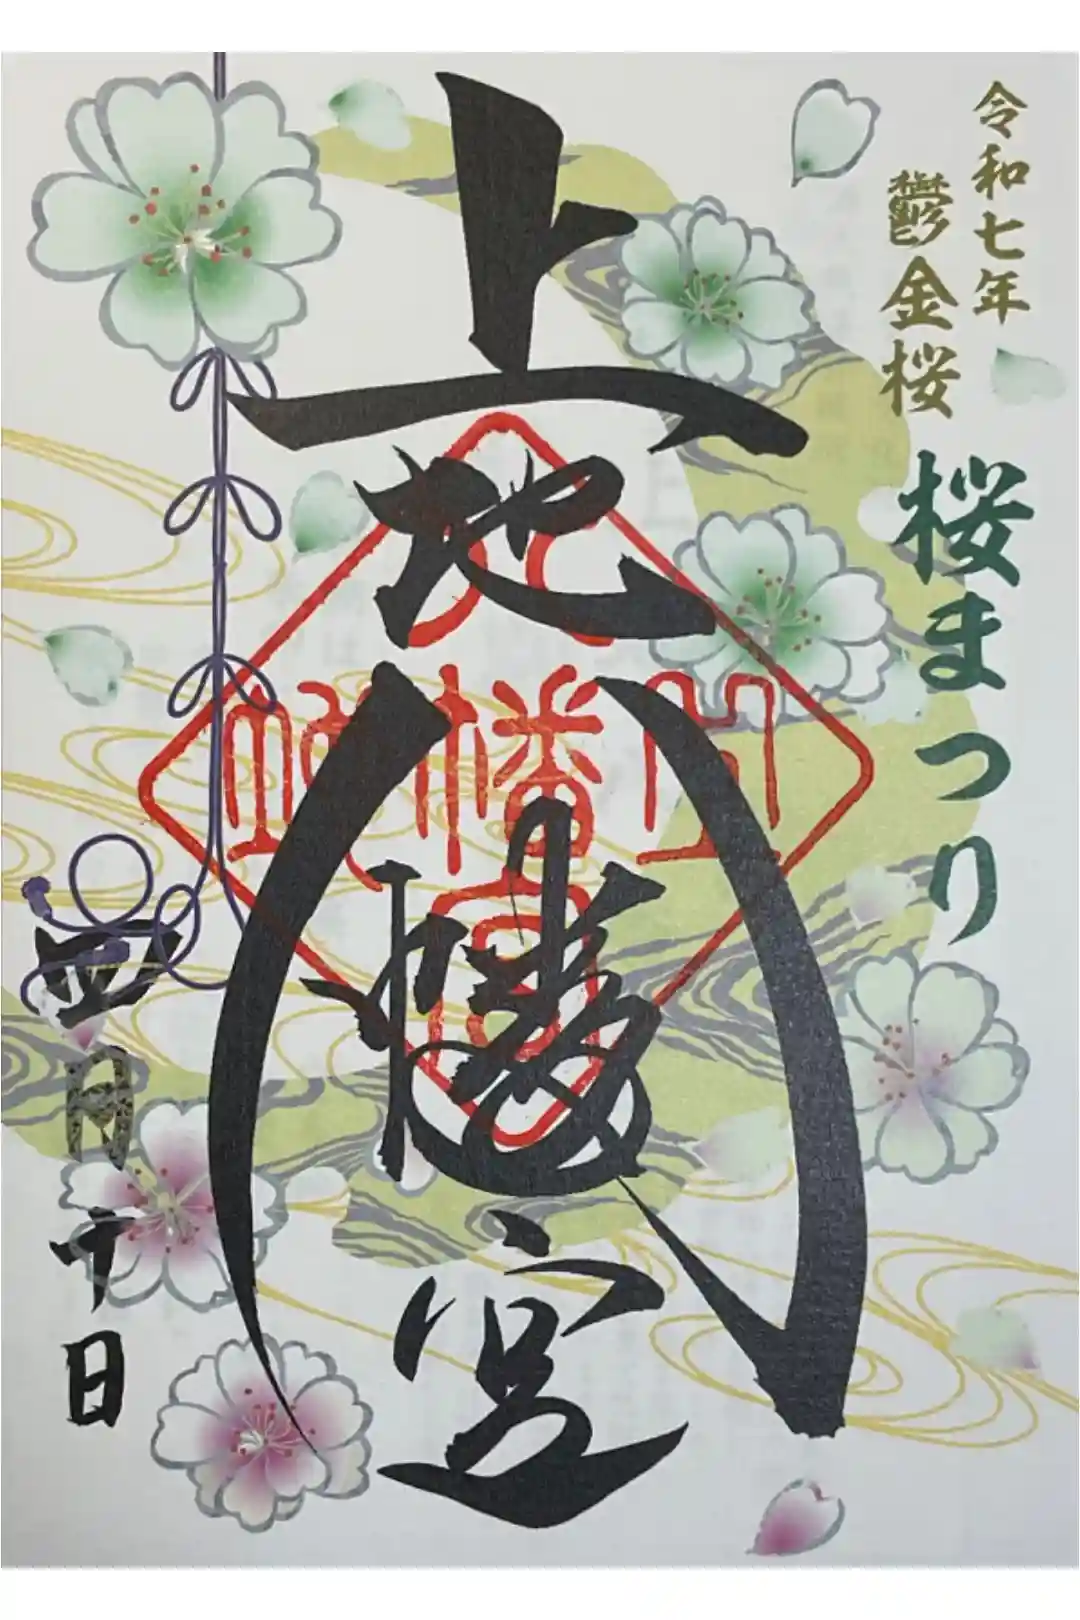 令和七年
鬱金桜
桜まつり
上地八幡宮
四月十日